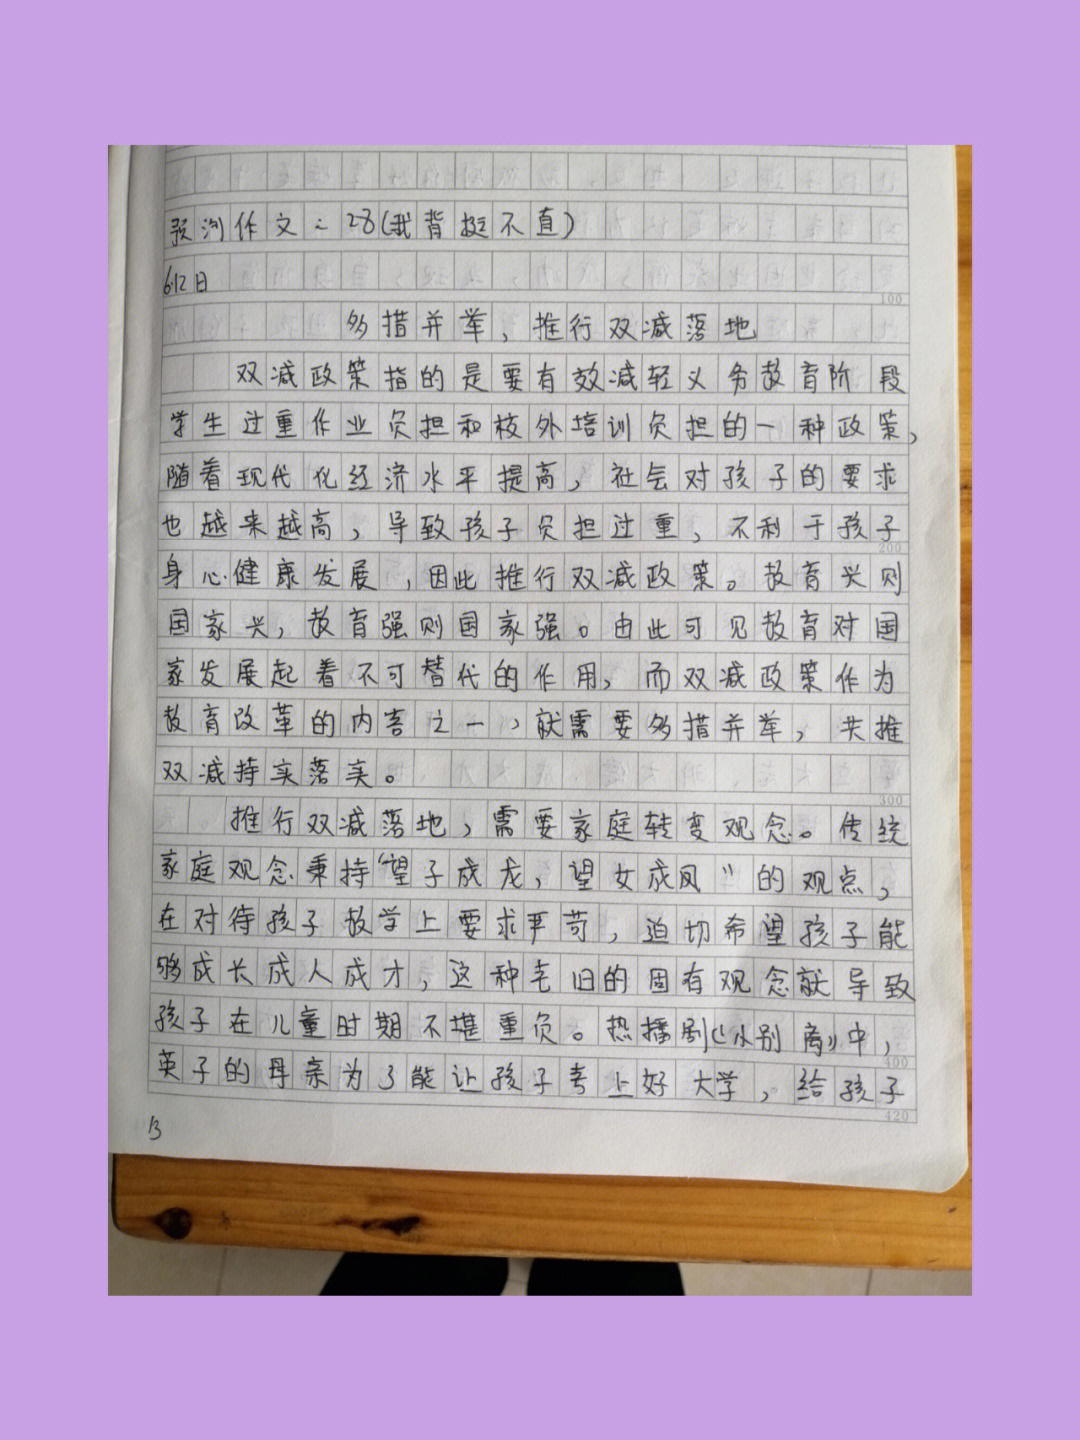 预测作文：28(我背挺不直)
6.12日
多措并举，推行双减落地
双减政策指的是要有效减轻义务教育阶段
学生过重作业负担和校外培训负担的一种政策，
随着现代化经济水平提高，社会对孩子的要求
也越来越高，导致孩子负担过重，不利于孩子
身心健康发展，因此推行双减政策。教育兴则
国家兴，教育强则国家强。由此可见教育对国
家发展起着不可替代的作用，而双减政策作为
教育改革的内容之一，就需要多措并举，共推
双减持实落实。
推行双减落地，需要家庭转变观念。传统
家庭观念秉持“望子成龙，望女成凤”的观点，
在对待孩子教学上要求严苛，迫切希望孩子能
够成长成人成才，这种老旧的固有观念就导致
孩子在儿童时期不堪重负。热播剧《小别离》中，
英子的母亲为了能让孩子考上好大学，给孩子
13
100
200
300
400
420